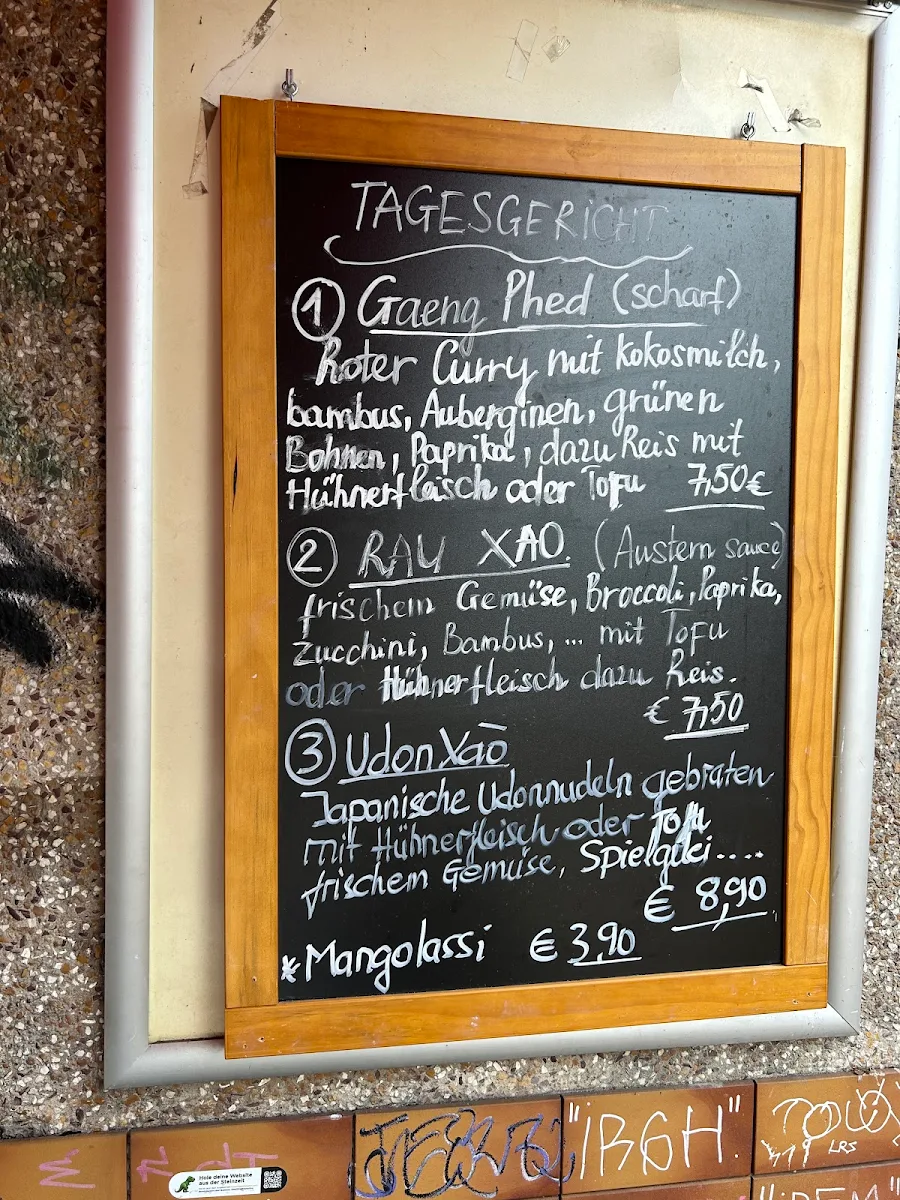 TAGESGERICHT
① Gaeng Phed (scharf)
Roter Curry mit kokosmilch,
bambus, Auberginen, grünen
Bohnen, Paprika, dazu Reis mit
Hühnerfleisch oder Tofu 7,50€
② RAU XAO. (Austern sauce)
frischem Gemüse, Broccoli, Paprika,
Zucchini, Bambus, ... mit Tofu
oder Hühnerfleisch dazu Reis.
€ 7,50
③ Udon Xaò
Japanische Udonnudeln gebraten
mit Hühnerfleisch oder Tofu
frischem Gemüse, Spielgilci....
€ 8,90
*Mangolassi € 3,90
Hole deine Website
aus der Steinzeit
"IRGH"
LRS